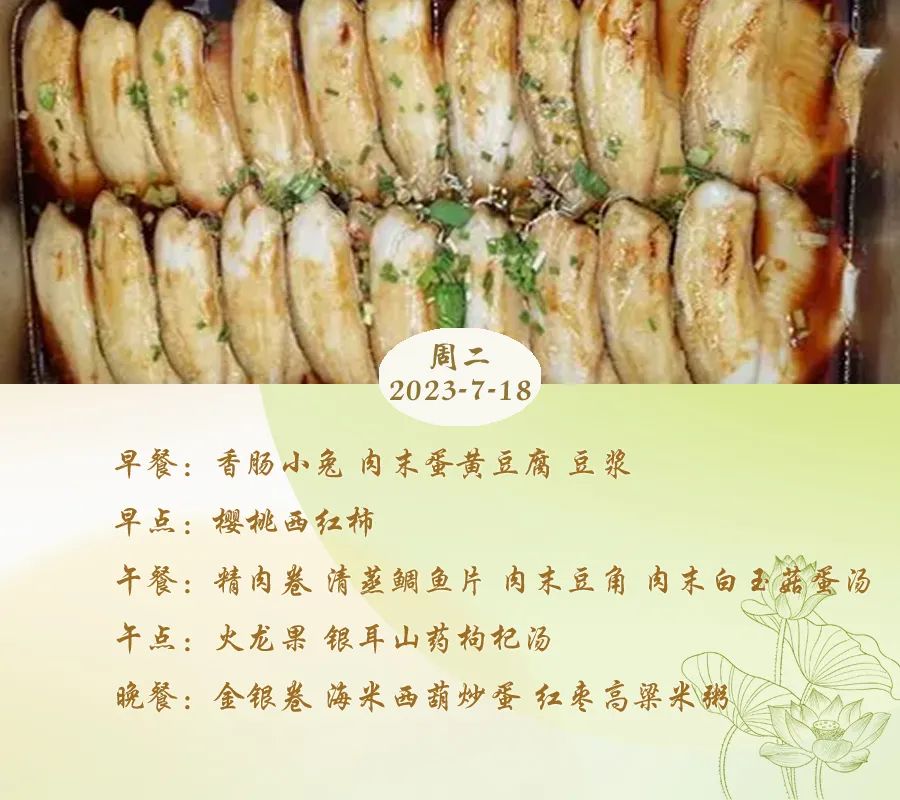 周二
2023-7-18
早餐：香肠小兔 肉末蛋黄豆腐 豆浆
早点：樱桃西红柿
午餐：精肉卷 清蒸鲷鱼片 肉末豆角 肉末白玉菇蛋汤
午点：火龙果 银耳山药枸杞汤
晚餐：金银卷 海米西葫炒蛋 红枣高粱米粥